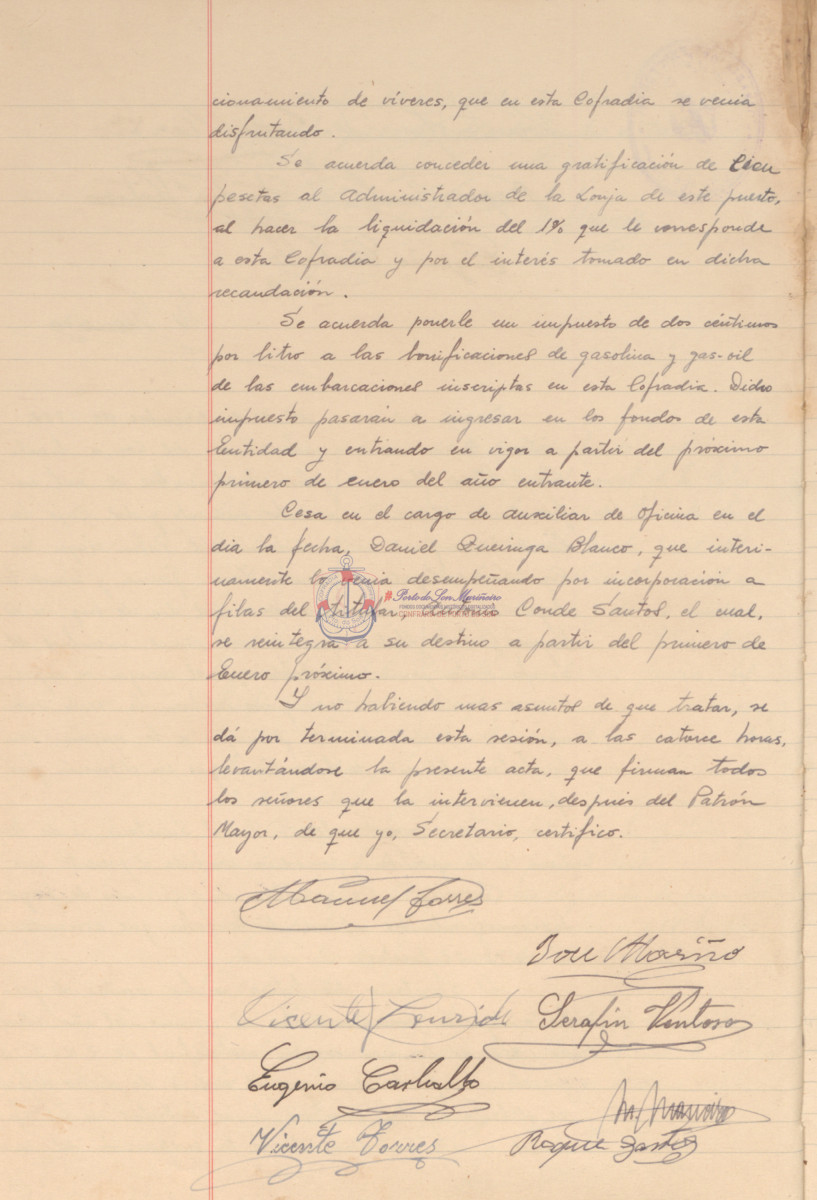 cionamiento de víveres, que en esta Cofradia se venia
disfrutando.
Se acuerda conceder una gratificación de Cien
pesetas al Administrador de la Lonja de este puerto,
al hacer la liquidación del 1% que le corresponde
a esta Cofradia y por el interés tomado en dicha
recaudación.
Se acuerda ponerle un impuesto de dos céntimos
por litro a las bonificaciones de gasolina y gas-oil
de las embarcaciones inscriptas en esta Cofradia. Dicho
impuesto pasarán a ingresar en los fondos de esta
Entidad y entrando en vigor a partir del próximo
primero de enero del año entrante.
Cesa en el cargo de auxiliar de Oficina en el
dia la fecha, Daniel Queiruga Blanco, que interi-
namente lo venia desempeñando por incorporación a
filas del titular, Conde Santos, el cual,
se reintegra a su destino a partir del primero de
Enero próximo.
Y no habiendo mas asuntos de que tratar, se
dá por terminada esta sesión, a las catorce horas,
levantándose la presente acta, que firman todos
los señores que la intervienen, después del Patrón
Mayor, de que yo, Secretario, certifico.
Manuel Torres
José Mariño
Vicente
Serafín Ventoso
Eugenio Carballo
Vicente Torres
Roque
Porto do Son Mariñeiro